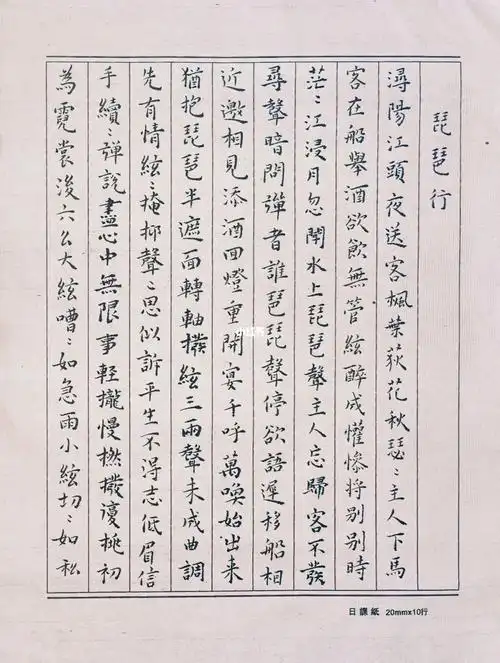 琵琶行
潯陽江頭夜送客楓葉荻花秋瑟〻主人下馬
客在船舉酒欲飲無管絃醉成懽慘将别别時
茫〻江浸月忽聞水上琵琶聲主人忘歸客不發
尋聲暗問彈者誰琵琶聲停欲語遲移船相
近邀相見添酒回燈重開宴千呼萬喚始出来
猶抱琵琶半遮面轉軸撥絃三兩聲未成曲調
先有情絃〻掩抑聲〻思似訴平生不得志低眉信
手續〻彈說盡心中無限事輕攏慢撚撥復挑初
為霓裳後六幺大絃嘈〻如急雨小絃切〻如私
小红书
日課紙 20mm×10行